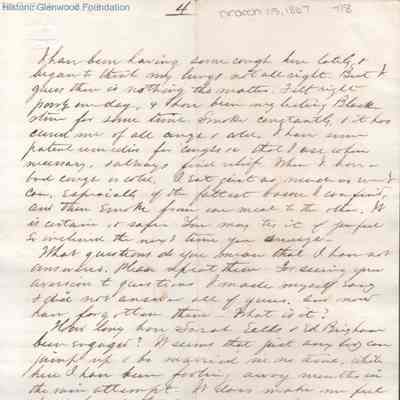 Historic Glenwood Foundation
4
March 15, 1867
I have been having some cough here lately, &
began to think my lungs not all right. But I
guess there is nothing the matter. Felt right
one day, & I have been
for some time. Smoke constantly, & it has
cured me of all cough & colds. I have some
patent remedies for coughs &c that I use when
necessary, & always find relief. When I have a
bad cough or cold, I eat just as much as ever I
can, especially of the fattest bacon I can find,
and then smoke from one meal to the other. It
is certain & safe. You may try it if you feel
so inclined the next time you
What questions do you mean that I have not
answered. Please repeat them. In seeing your
aversion to questions I made myself
& did not answer all of yours. and now
have forgotten them. What is it?
How long have Sarah & Ed Brigham
been engaged? It seems that just any body can
jump up & be married in no time, while
here I have been fooling away months in
the vain attempt. It does make me feel